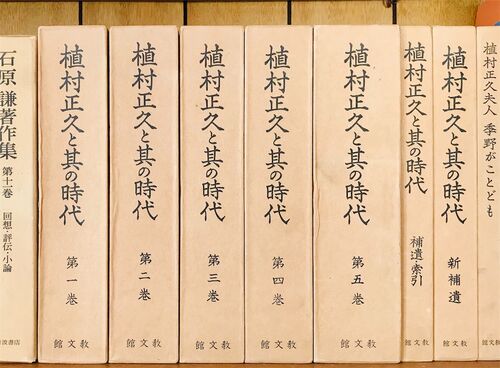 石原謙著作集
第十一巻
回想・評伝・小論
波書店
植村正久と其の時代
第一巻
教文館
植村正久と其の時代
第二巻
教文館
植村正久と其の時代
第三巻
教文館
植村正久と其の時代
第四巻
教文館
植村正久と其の時代
第五巻
教文館
植村正久と其の時代
補遺・索引
教文館
植村正久と其の時代
新補遺
教文館
植村正久夫人 季野がことども
教文館